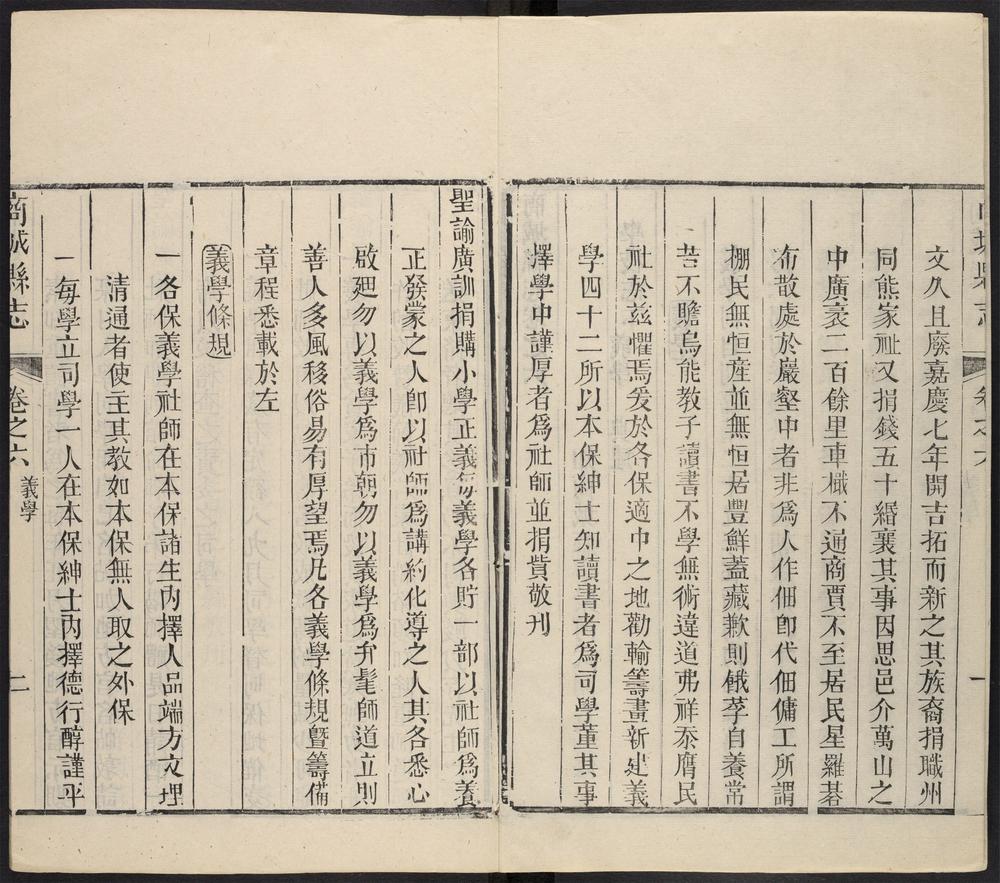 文久且廢嘉慶七年開吉拓而新之其族裔捐職州
同熊家祉又捐錢五十緡襄其事因思邑介萬山之
中廣袤二百餘里車檝不通商賈不至居民星羅碁
布散處於巖壑中者非爲人作佃卽代佃傭工所謂
棚民無恒産並無恒居豐鮮蓋藏歉則餓莩自養常
苦不贍烏能教子讀書不學無術違道弗祥忝膺民
社於兹懼焉爰於各保適中之地勸輸籌畫新建義
學四十二所以本保紳士知讀書者爲司學董其事
擇學中謹厚者爲社師並捐貲敬刊
聖諭廣訓捐購小學正義每義學各貯一部以社師爲養
正發蒙之人卽以社師爲講約化導之人其各悉心
啟廸勿以義學爲市朝勿以義學爲弁髦師道立則
善人多風移俗易有厚望焉凡各義學條規曁籌備
章程悉載於左
義學條規
一各保義學社師在本保諸生內擇人品端方文理
清通者使主其教如本保無人取之外保
一每學立司學一人在本保紳士內擇德行醇謹平
商城縣志
卷之六
義學
二